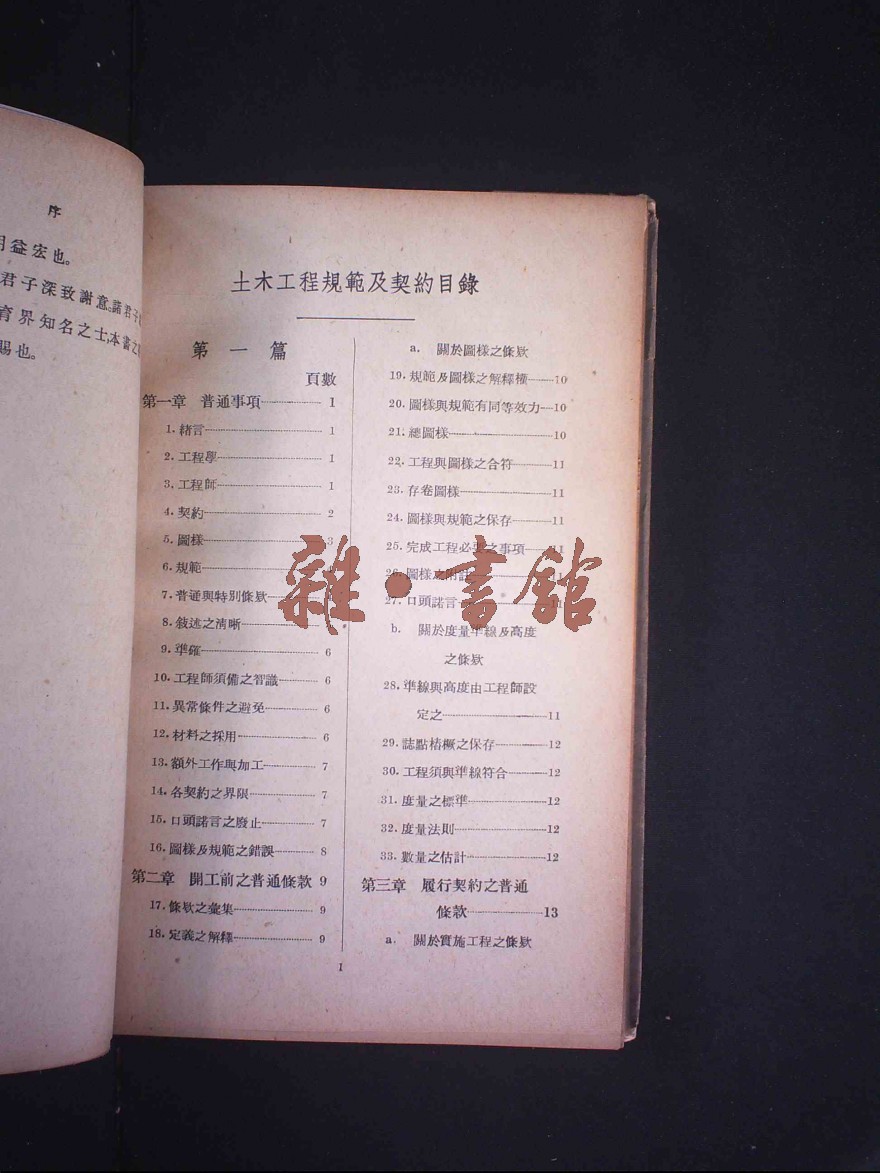 序
益宏也。
君子深致謝意。諸君子
育界知名之士,本書之
賜也。
土木工程規範及契約目錄
第一篇
頁數
第一章 普通事項 1
1. 緒言 1
2. 工程學 1
3. 工程師 1
4. 契約 2
5. 圖樣 3
6. 規範
7. 普通與特別條欵
8. 敍述之清晰
9. 準確 6
10. 工程師須備之智識 6
11. 異常條件之避免 6
12. 材料之採用 6
13. 額外工作與加工 7
14. 各契約之界限 7
15. 口頭諾言之廢止 7
16. 圖樣及規範之錯誤 8
第二章 開工前之普通條款 9
17. 條欵之彙集 9
18. 定義之解釋 9
a. 關於圖樣之條欵
19. 規範及圖樣之解釋權 10
20. 圖樣與規範有同等效力 10
21. 總圖樣 10
22. 工程與圖樣之合符 11
23. 存卷圖樣 11
24. 圖樣與規範之保存 11
25. 完成工程必要之事項 11
26. 圖樣之附註
27. 口頭諾言 11
b. 關於度量準線及高度
之條欵
28. 準線與高度由工程師設
定之 11
29. 誌點樁橛之保存 12
30. 工程須與準線符合 12
31. 度量之標準 12
32. 度量法則 12
33. 數量之估計 12
第三章 履行契約之普通
條款 13
a. 關於實施工程之條欵
1
雜·書館